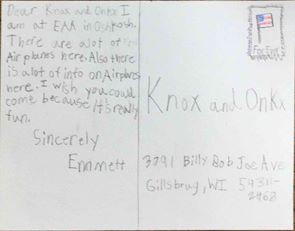 Dear Knox and Onkx I
am at EAA in Oshkosh.
There are alot of
Airplanes here. Also there
is alot of info on Airplanes
here. I wish you could
come because it's really
fun.
Sincerely
Emmett
Forever
Knox and Onkx
3791 Billy Bob Joe Ave
Gillsbrug, WI 54311-
2468